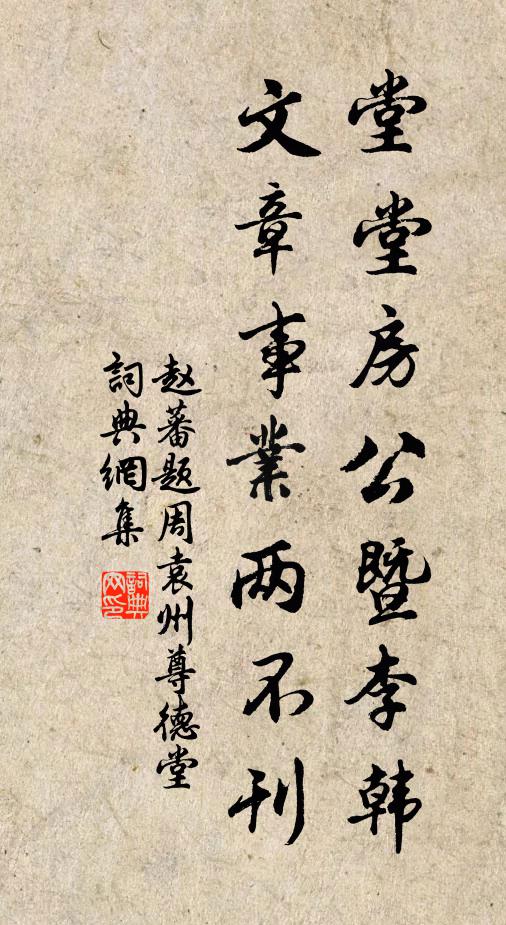 堂堂房公暨李韩
文章事业两不刊
赵蕃题周袁州尊德堂
词典網集
詞典
网印